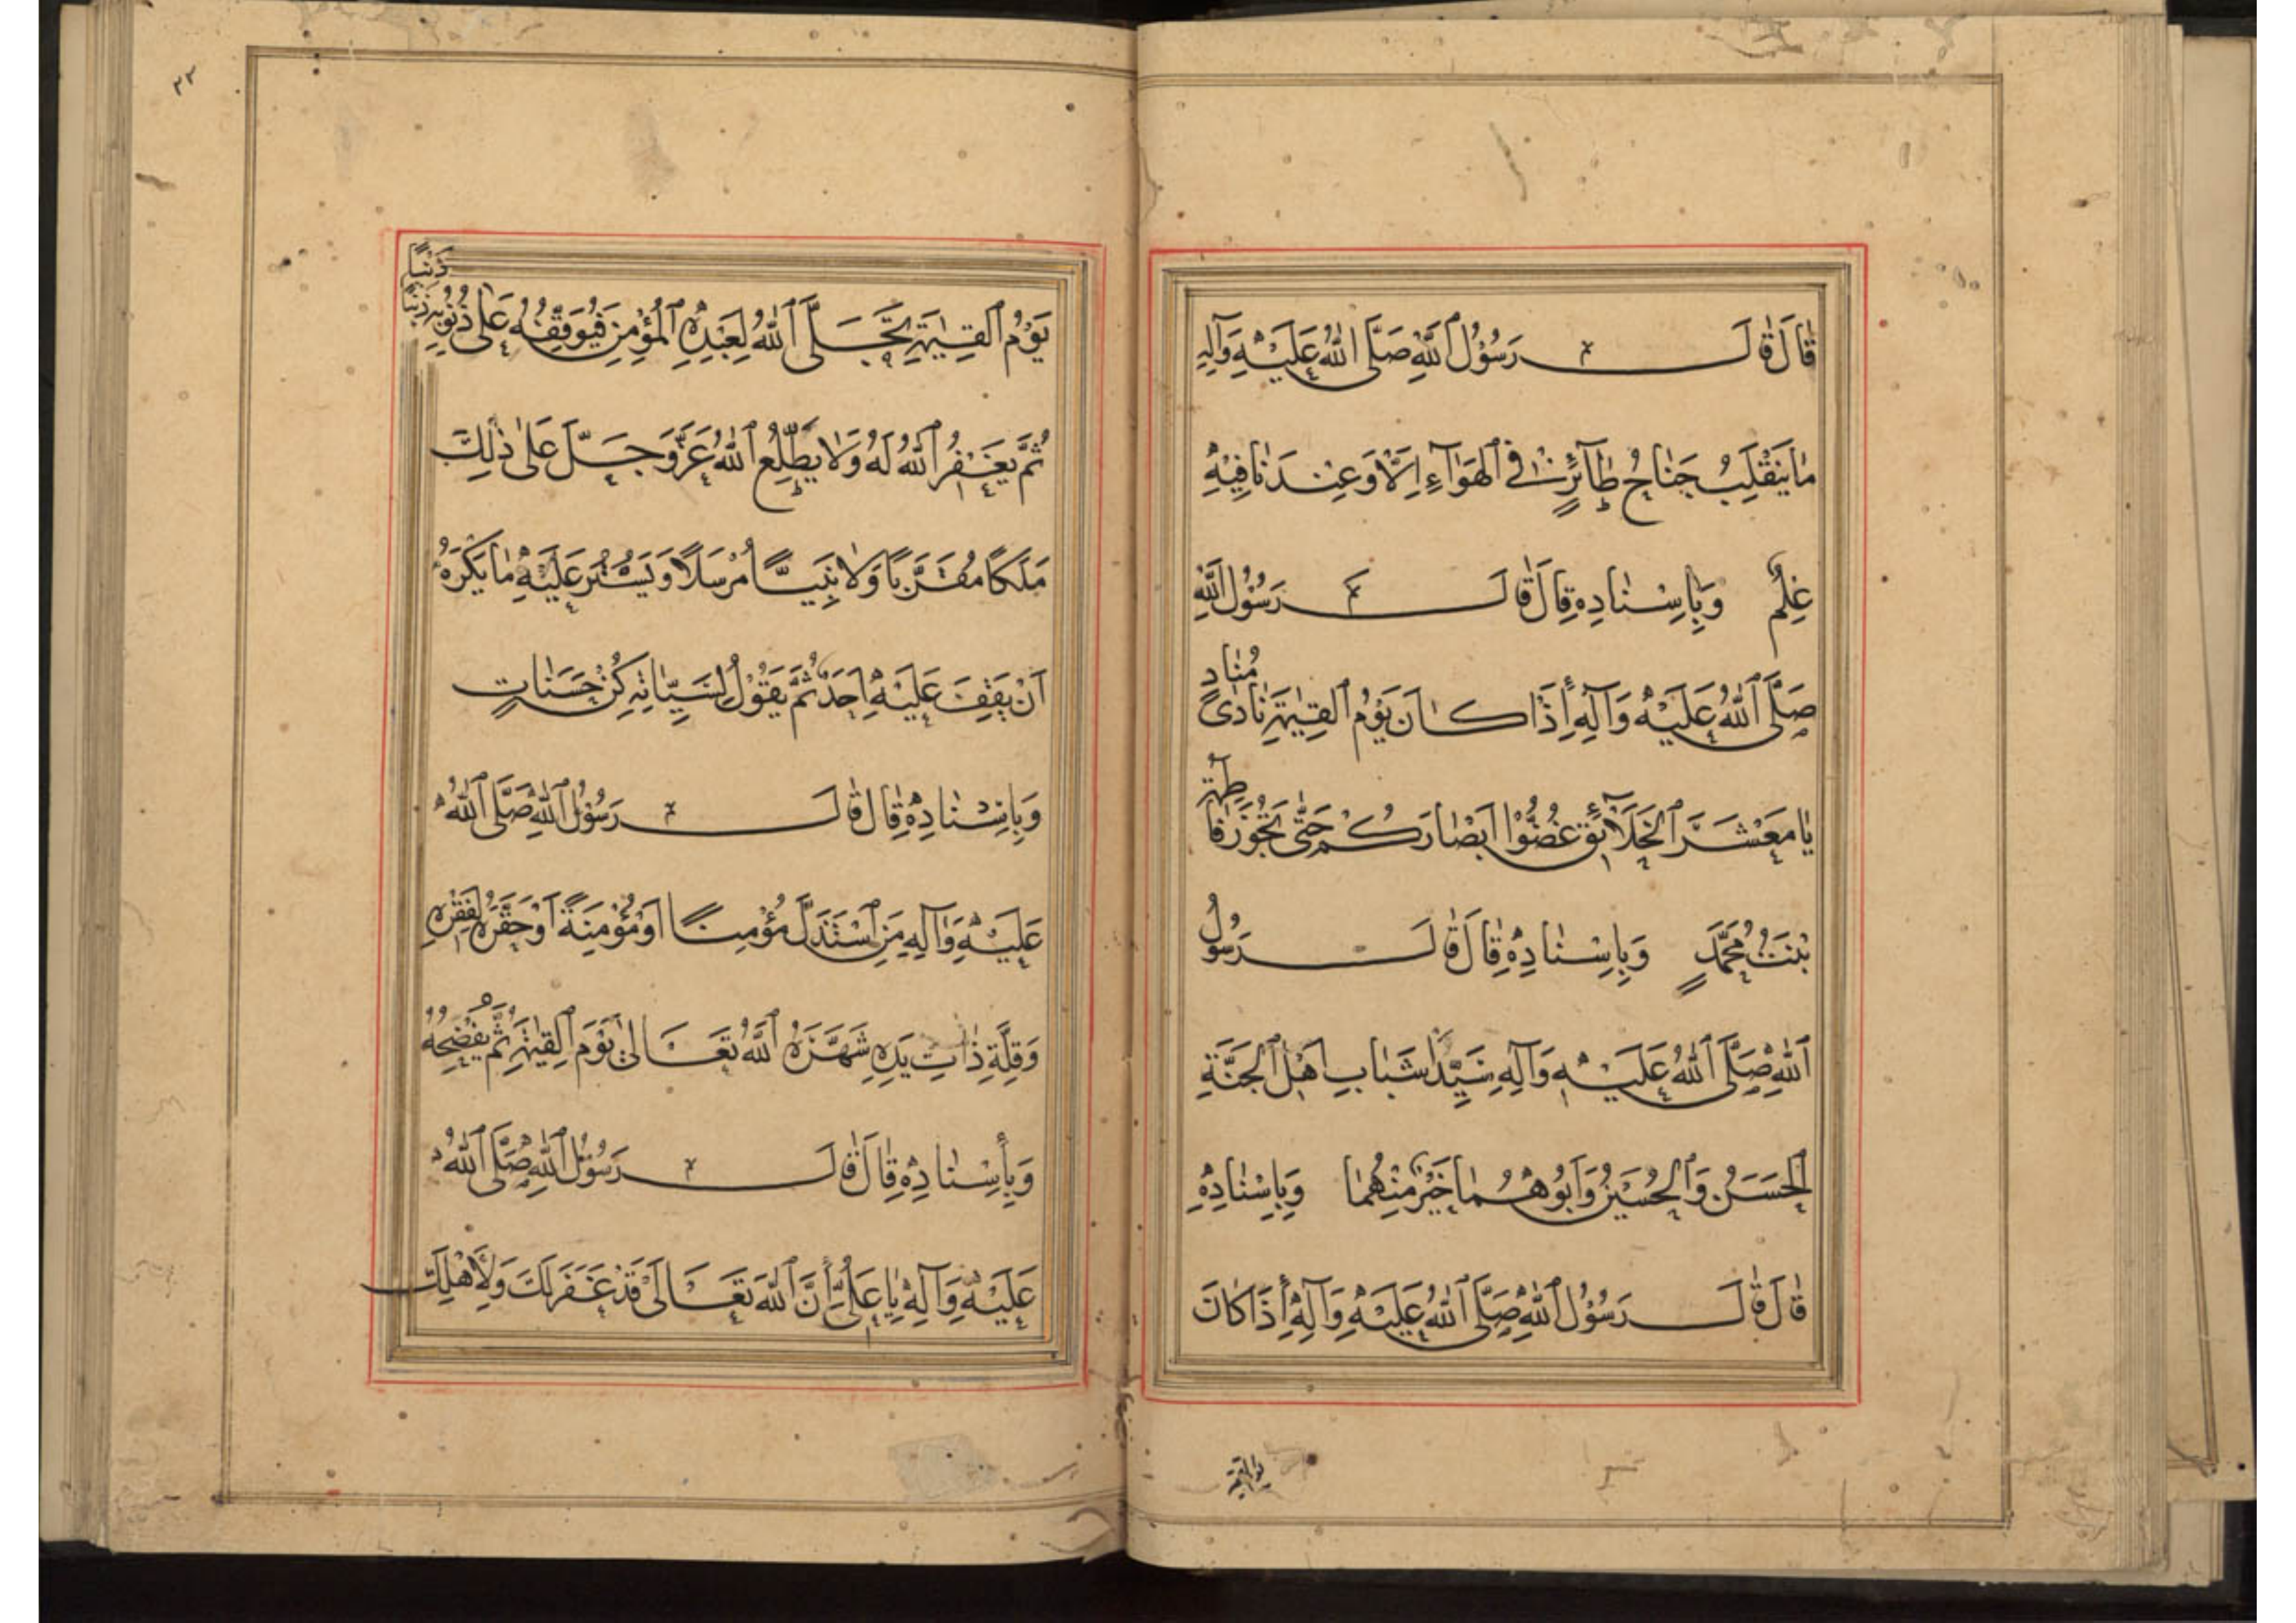 قَالَ قَالَ رَسُوْلُ ٱللّٰهِ صَلَّى ٱللّٰهُ عَلَيْهِ وَآلِهِ
مٰا يَنْقَلِبُ جَنٰاحُ طٰآئِرٍ فِي ٱلْهَوٰآءِ اِلَّا وَعِنْدَنٰا فِيْهِ
عِلْمٌ وَبِاِسْنٰادِهِ قٰالَ قٰالَ رَسُوْلُ ٱللّٰهِ
صَلَّى ٱللّٰهُ عَلَيْهِ وَآلِهِ إِذَا كَانَ يَوْمُ ٱلْقِيٰمَةِ نٰادىٰ مُنٰادٍ
يٰا مَعْشَرَ ٱلْخَلَآئِقِ غُضُّوْا اَبْصٰارَكُمْ حَتّٰى تَجُوْزَ فٰاطِمَةُ
بِنْتُ مُحَمَّدٍ وَبِاِسْنٰادِهِ قٰالَ قٰالَ رَسُوْلُ
ٱللّٰهِ صَلَّى ٱللّٰهُ عَلَيْهِ وَآلِهِ سَيِّدٰا شَبٰابِ اَهْلِ ٱلْجَنَّةِ
ٱلْحَسَنُ وَٱلْحُسَيْنُ وَاَبُوْهُمٰا خَيْرٌ مِنْهُمٰا وَبِاِسْنٰادِهِ
قٰالَ قٰالَ رَسُوْلُ ٱللّٰهِ صَلَّى ٱللّٰهُ عَلَيْهِ وَآلِهِ إِذَا كَانَ
يوم القيمة
٣٣
يَوْمُ ٱلْقِيٰمَةِ تَجَلَّى ٱللّٰهُ لِعَبْدِهِ ٱلْمُؤْمِنِ فَيُوَقِّفُهُ عَلٰى ذُنُوْبِهِ ذَنْبًا ذَنْبًا
ثُمَّ يَغْفِرُ ٱللّٰهُ لَهُ وَلٰا يُطْلِعُ ٱللّٰهُ عَزَّ وَجَلَّ عَلٰى ذٰلِكَ
مَلَكًا مُقَرَّبًا وَلٰا نَبِيًّا مُرْسَلًا وَيَسْتُرُ عَلَيْهِ مٰا يَكْرَهُ
اَنْ يَقِفَ عَلَيْهِ اَحَدٌ ثُمَّ يَقُوْلُ لِسَيِّئٰاتِهِ كُنْ حَسَنٰاتٍ
وَبِاِسْنٰادِهِ قٰالَ قٰالَ رَسُوْلُ ٱللّٰهِ صَلَّى ٱللّٰهُ
عَلَيْهِ وَآلِهِ مَنِ ٱسْتَذَلَّ مُؤْمِنًا اَوْ مُؤْمِنَةً اَوْ حَقَّرَهُ لِفَقْرِهِ
وَقِلَّةِ ذٰاتِ يَدِهِ شَهَّرَهُ ٱللّٰهُ تَعَالىٰ يَوْمَ ٱلْقِيٰمَةِ ثُمَّ يُفْضِحُهُ
وَبِإِسْنٰادِهِ قٰالَ قٰالَ رَسُوْلُ ٱللّٰهِ صَلَّى ٱللّٰهُ
عَلَيْهِ وَآلِهِ يٰا عَلِيُّ إِنَّ ٱللّٰهَ تَعَالىٰ قَدْ غَفَرَ لَكَ وَلِأَهْلِكَ